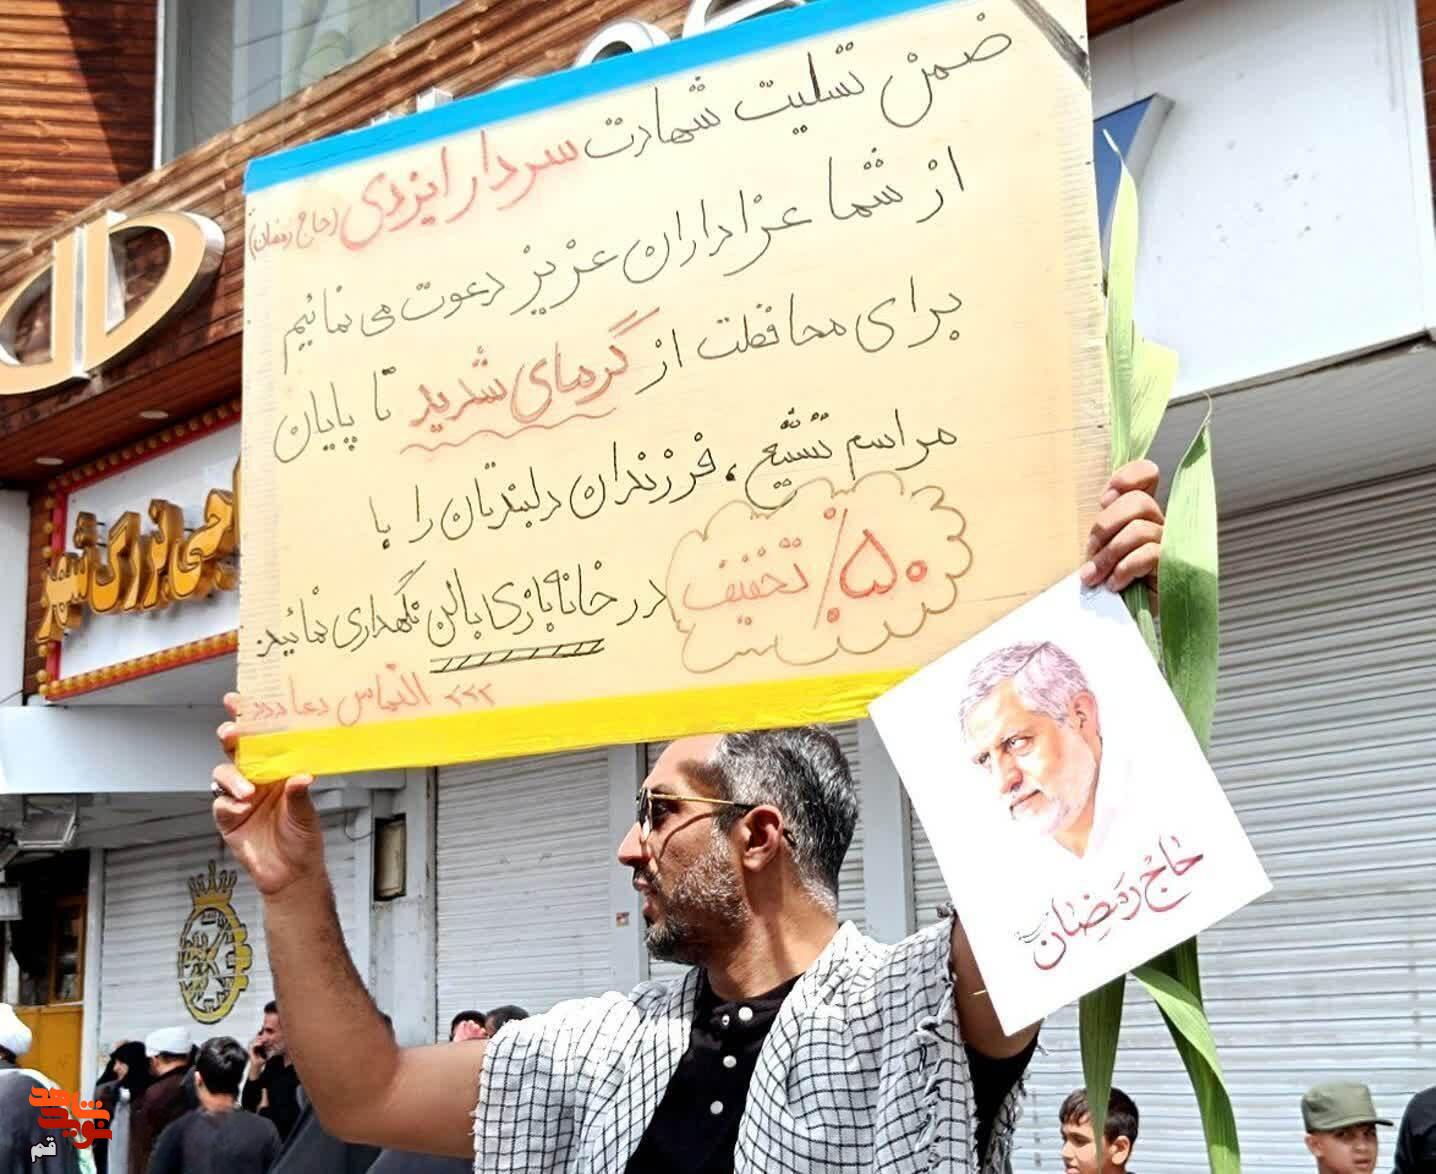 ضمن تسلیت شهادت سردار ایزدی (حاج رمضان)
از شما عزاداران عزیز دعوت می نمائیم
برای محافظت از گرمای شدید تا پایان
مراسم تشییع ، فرزندان دلبندتان را با
۵۰٪ تخفیف در خانه بازی بالن نگهداری نمائید.
التماس دعا
حاج رمضان
قم